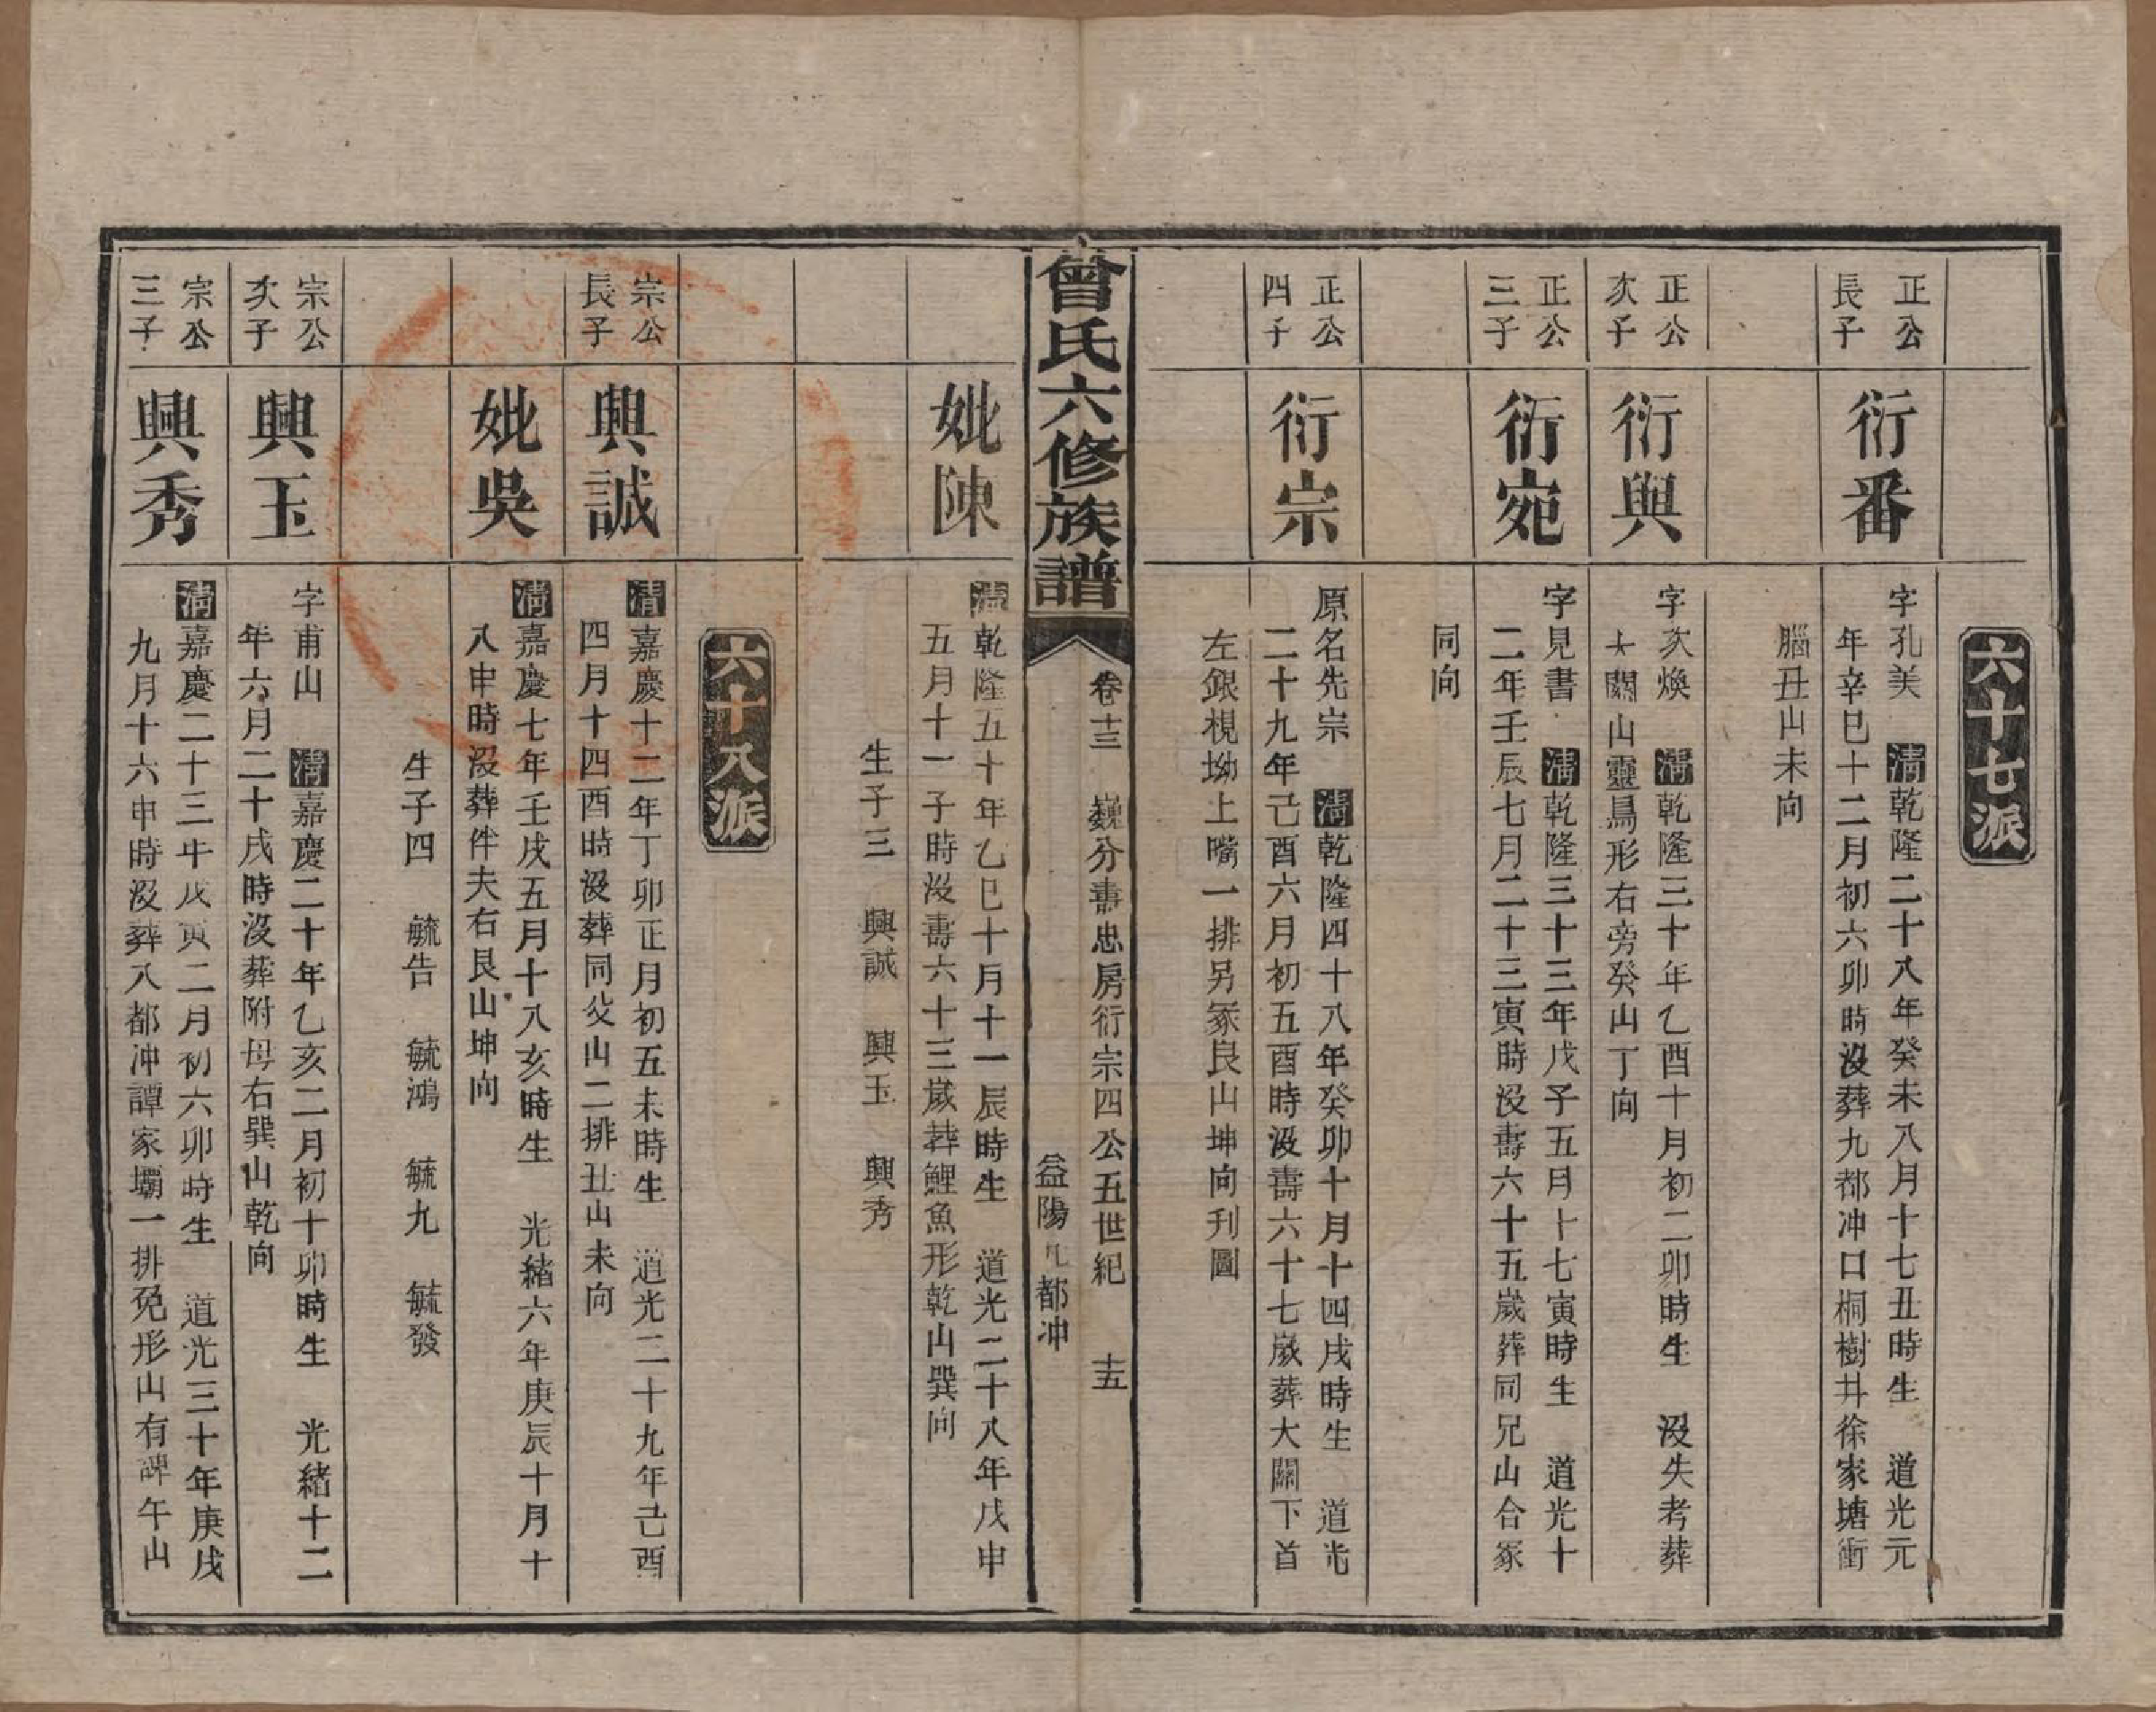 六十七派
正公
長子
衍番
字孔美 清乾隆二十八年癸未八月十七丑時生 道光元
年辛巳十二月初六卯時沒葬九都冲口桐樹井徐家塘衝
腦丑山未向
正公
次子
衍與
字次煥 清乾隆三十年乙酉十月初二卯時生 沒失考葬
大關山靈鳥形右旁癸山丁向
正公
三子
衍宛
字見書 清乾隆三十三年戊子五月十七寅時生 道光十
二年壬辰七月二十三寅時沒壽六十五歲葬同兄山合冢
同向
正公
四子
衍宗
原名先宗 清乾隆四十八年癸卯十月十四戌時生 道光
二十九年己酉六月初五酉時沒壽六十七歲葬大關下首
左銀梘坳上嘴一排另冢艮山坤向刊圖
曾氏六修族譜
卷十三 巍分壽忠房衍宗四公五世紀 十五
益陽九都冲
妣陳
清乾隆五十年乙巳十月十一辰時生 道光二十八年戊申
五月十一子時沒壽六十三歲葬鯉魚形乾山巽向
生子三 興誠 興玉 興秀
六十八派
宗公
長子
興誠
清嘉慶十二年丁卯正月初五未時生 道光二十九年己酉
四月十四酉時沒葬同父山二排丑山未向
妣吳
清嘉慶七年壬戌五月十八亥時生 光緒六年庚辰十月十
八申時沒葬伴夫右艮山坤向
生子四 毓告 毓鴻 毓九 毓發
宗公
次子
興玉
字甫山 清嘉慶二十年乙亥二月初十卯時生 光緒十二
年六月二十戌時沒葬附母右巽山乾向
宗公
三子
興秀
清嘉慶二十三年戊寅二月初六卯時生 道光三十年庚戌
九月十六申時沒葬八都冲譚家壩一排兔形山有碑午山